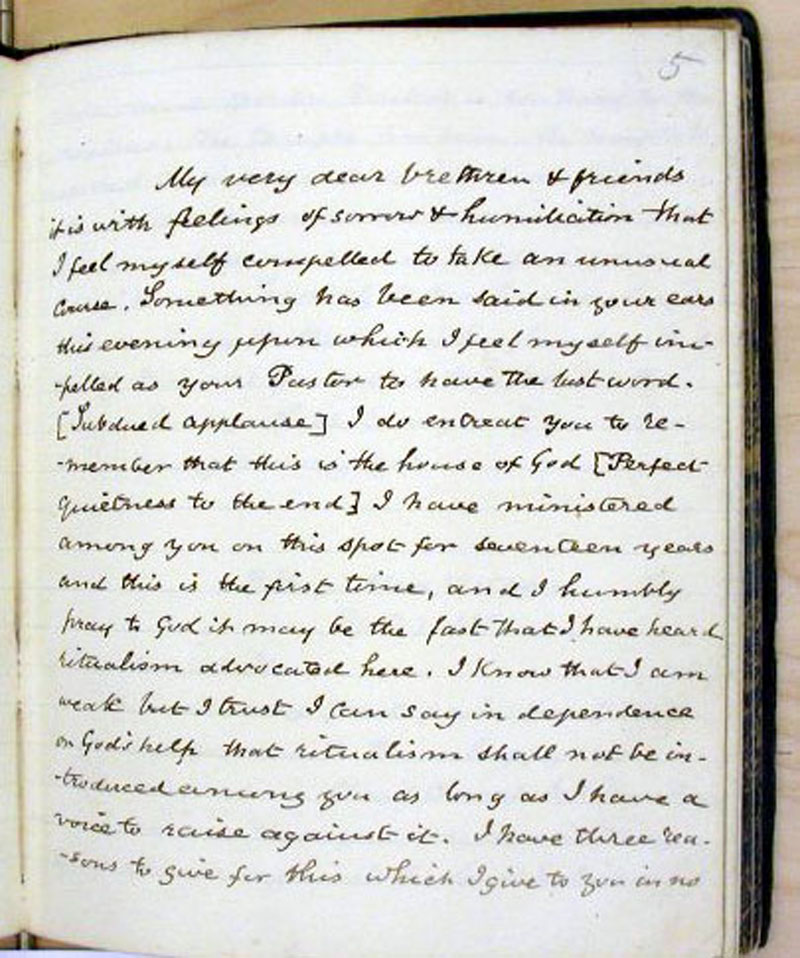 5
My very dear brethren & friends
it is with feelings of sorrow & humiliation that
I feel myself compelled to take an unusual
course. Something has been said in your ears
this evening upon which I feel myself im-
-pelled as your Pastor to have the last word.
[Subdued applause] I do entreat you to re-
-member that this is the house of God [Perfect
quietness to the end] I have ministered
among you on this spot for seventeen years
and this is the first time, and I humbly
pray to God it may be the last that I have heard
ritualism advocated here. I know that I am
weak but I trust I can say in dependence
on God's help that ritualism shall not be in-
-troduced among you as long as I have a
voice to raise against it. I have three rea-
-sons to give for this which I give to you in no